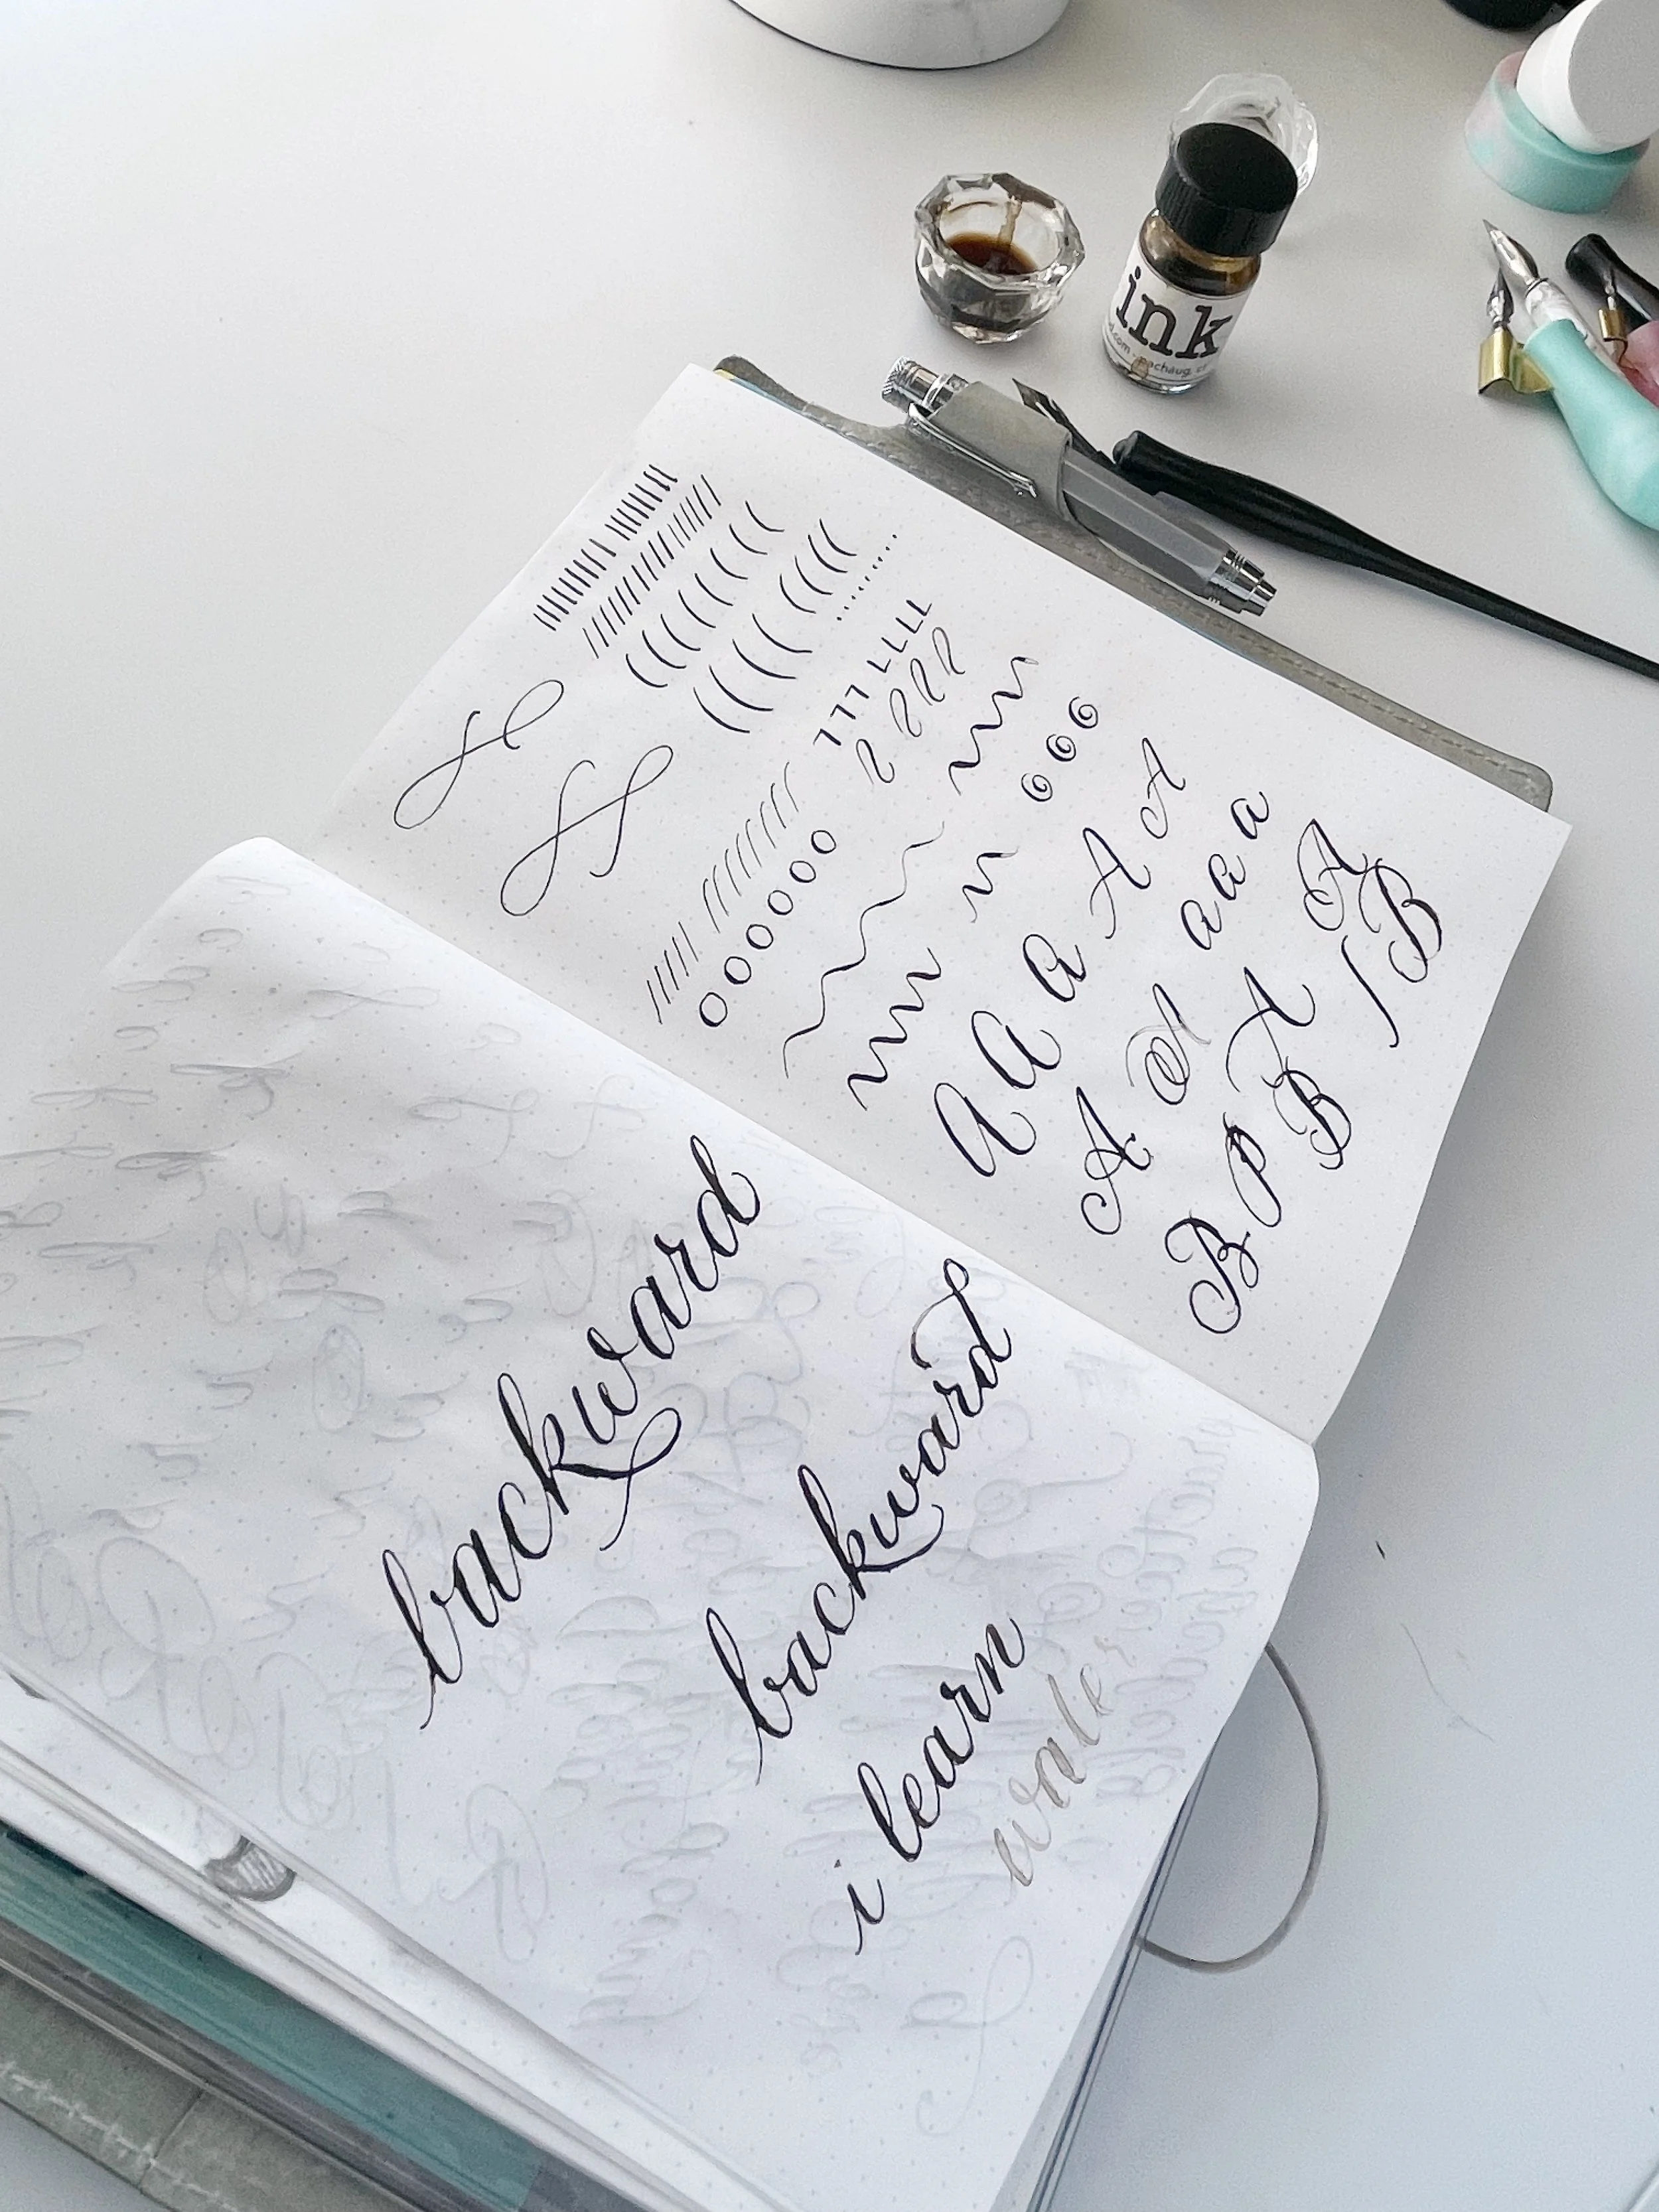 ink
A A a A A
A A a a a
B P B A A B
backward
backward
i learn
water